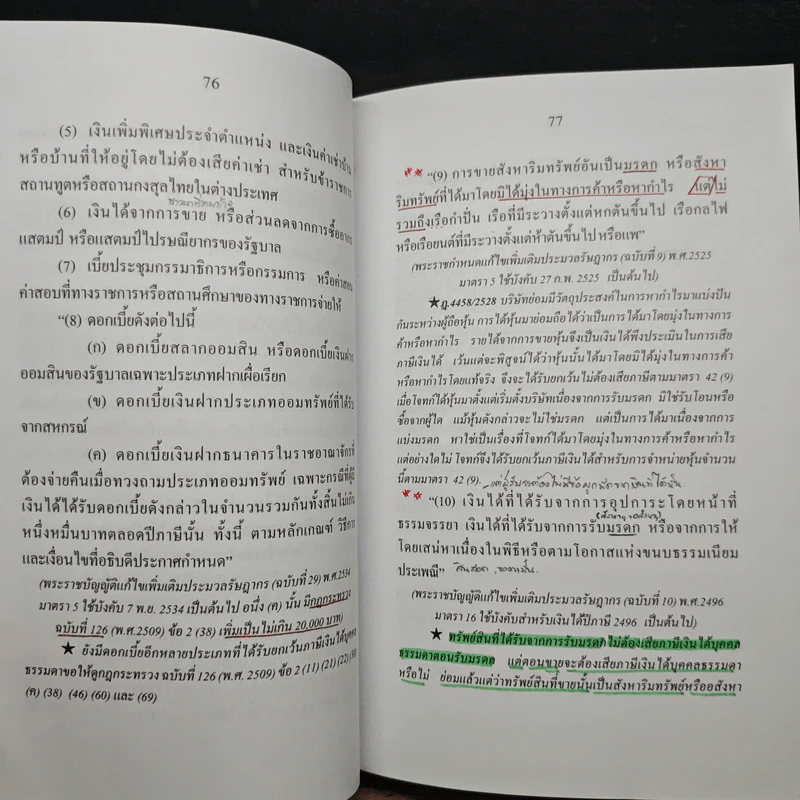 76
(5) เงินเพิ่มพิเศษประจำตำแหน่ง และเงินค่าเช่าบ้าน
หรือบ้านที่ให้อยู่โดยไม่ต้องเสียค่าเช่า สำหรับข้าราชการ
สถานทูตหรือสถานกงสุลไทยในต่างประเทศ
(6) เงินได้จากการขาย หรือส่วนลดจากการซื้ออากร
แสตมป์ หรือแสตมป์ไปรษณียากรของรัฐบาล
(7) เบี้ยประชุมกรรมาธิการหรือกรรมการ หรือค่าสอน
ค่าสอบที่ทางราชการหรือสถานศึกษาของทางราชการจ่ายให้
“(8) ดอกเบี้ยดังต่อไปนี้
(ก) ดอกเบี้ยสลากออมสิน หรือดอกเบี้ยเงินฝาก
ออมสินของรัฐบาลเฉพาะประเภทฝากเผื่อเรียก
(ข) ดอกเบี้ยเงินฝากประเภทออมทรัพย์ที่ได้รับ
จากสหกรณ์
(ค) ดอกเบี้ยเงินฝากธนาคารในราชอาณาจักรที่
ต้องจ่ายคืนเมื่อทวงถามประเภทออมทรัพย์ เฉพาะกรณีที่ผู้มี
เงินได้ได้รับดอกเบี้ยดังกล่าวในจำนวนรวมกันทั้งสิ้นไม่เกิน
หนึ่งหมื่นบาทตลอดปีภาษีนั้น ทั้งนี้ ตามหลักเกณฑ์ วิธีการ
และเงื่อนไขที่อธิบดีประกาศกำหนด”
(พระราชบัญญัติแก้ไขเพิ่มเติมประมวลรัษฎากร (ฉบับที่ 29) พ.ศ.2534
มาตรา 5 ใช้บังคับ 7 พ.ย. 2534 เป็นต้นไป อนึ่ง (ค) นั้น มีกฎกระทรวง
ฉบับที่ 126 (พ.ศ.2509) ข้อ 2 (38) เพิ่มเป็นไม่เกิน 20,000 บาท)
★ ยังมีดอกเบี้ยอีกหลายประเภทที่ได้รับยกเว้นภาษีเงินได้บุคคล
ธรรมดาขอให้ดูกฎกระทรวง ฉบับที่ 126 (พ.ศ. 2509) ข้อ 2 (11) (21) (22)
(ค) (38) (46) (60) และ (69)
77
“(9) การขายสังหาริมทรัพย์อันเป็นมรดก หรือสังหา
ริมทรัพย์ที่ได้มาโดยมิได้มุ่งในทางการค้าหรือหากำไร แต่ไม่
รวมถึงเรือกำปั่น เรือที่มีระวางตั้งแต่หกตันขึ้นไป เรือกลไฟ
หรือเรือยนต์ที่มีระวางตั้งแต่ห้าตันขึ้นไป หรือแพ”
(พระราชกำหนดแก้ไขเพิ่มเติมประมวลรัษฎากร (ฉบับที่ 9) พ.ศ.2525
มาตรา 5 ใช้บังคับ 27 ก.พ. 2525 เป็นต้นไป)
★ ฎ.4458/2528 บริษัทย่อมมีวัตถุประสงค์ในการหากำไรมาแบ่งปัน
กันระหว่างผู้ถือหุ้น การได้หุ้นมาย่อมถือได้ว่าเป็นการได้มาโดยมุ่งในทางการ
ค้าหรือหากำไร รายได้จากการขายหุ้นจึงเป็นเงินได้พึงประเมินในการเสีย
ภาษีเงินได้ เว้นแต่จะพิสูจน์ได้ว่าหุ้นนั้นได้มาโดยมิได้มุ่งในทางการค้า
หรือหากำไรโดยแท้จริง จึงจะได้รับยกเว้นไม่ต้องเสียภาษีตามมาตรา 42 (9)
เมื่อโจทก์ได้หุ้นมาตั้งแต่เริ่มตั้งบริษัทเนื่องจากการรับมรดก มิใช่รับโอนหรือ
ซื้อจากผู้ใด แม้หุ้นดังกล่าวจะไม่ใช่มรดก แต่เป็นการได้มาเนื่องจากการ
แบ่งมรดก หาใช่เป็นเรื่องที่โจทก์ได้มาโดยมุ่งในทางการค้าหรือหากำไร
แต่อย่างใดไม่ โจทก์จึงได้รับยกเว้นภาษีเงินได้สำหรับการจำหน่ายหุ้นจำนวน
นี้ตามมาตรา 42 (9).
“(10) เงินได้ที่ได้รับจากการอุปการะโดยหน้าที่
ธรรมจรรยา เงินได้ที่ได้รับจากการรับมรดก หรือจากการให้
โดยเสน่หาเนื่องในพิธีหรือตามโอกาสแห่งขนบธรรมเนียม
ประเพณี”
(พระราชบัญญัติแก้ไขเพิ่มเติมประมวลรัษฎากร (ฉบับที่ 10) พ.ศ.2496
มาตรา 16 ใช้บังคับสำหรับเงินได้ปีภาษี 2496 เป็นต้นไป)
★ ทรัพย์สินที่ได้รับจากการรับมรดกไม่ต้องเสียภาษีเงินได้บุคคล
ธรรมดาตอนรับมรดก แต่ตอนขายจะต้องเสียภาษีเงินได้บุคคลธรรมดา
หรือไม่ ย่อมแล้วแต่ว่าทรัพย์สินที่ขายนั้นเป็นสังหาริมทรัพย์หรืออสังหา